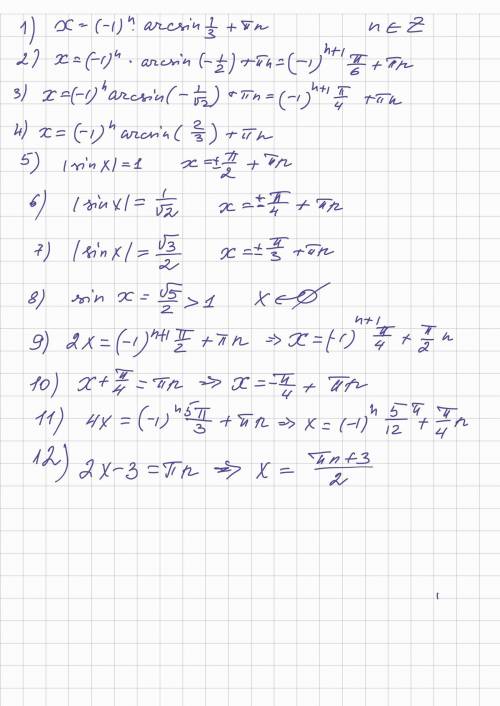 1) x = (-1)ⁿ · arcsin 1/3 + πn n ∈ Z
2) x = (-1)ⁿ · arcsin(-1/2) + πn = (-1)ⁿ⁺¹ π/6 + πn
3) x = (-1)ⁿ arcsin(-1/√2) + πn = (-1)ⁿ⁺¹ π/4 + πn
4) x = (-1)ⁿ arcsin(2/3) + πn
5) |sin x| = 1 x = ± π/2 + πn
6) |sin x| = 1/√2 x = ± π/4 + πn
7) |sin x| = √3/2 x = ± π/3 + πn
8) sin x = √5/2 > 1 x ∈ ∅
9) 2x = (-1)ⁿ⁺¹ π/2 + πn ⇒ x = (-1)ⁿ⁺¹ π/4 + π/2 n
10) x + π/4 = πn ⇒ x = -π/4 + πn
11) 4x = (-1)ⁿ 5π/3 + πn ⇒ x = (-1)ⁿ 5π/12 + π/4 n
12) 2x - 3 = πn ⇒ x = (πn + 3)/2